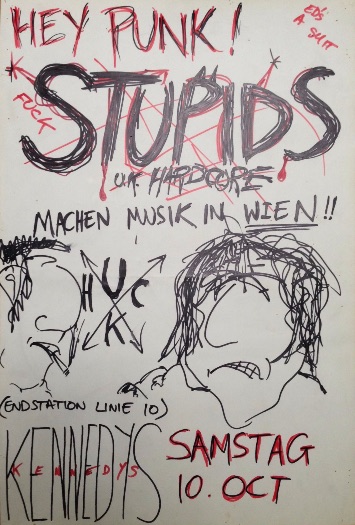 HEY PUNK!
ED'S
A SHIT
FUCK
STUPIDS
U.K. HARDCORE
MACHEN MUSIK IN WIEN!!
HUCK
(ENDSTATION LINIE 10)
KENNEDYS
KENNEDYS
SAMSTAG
10. OCT